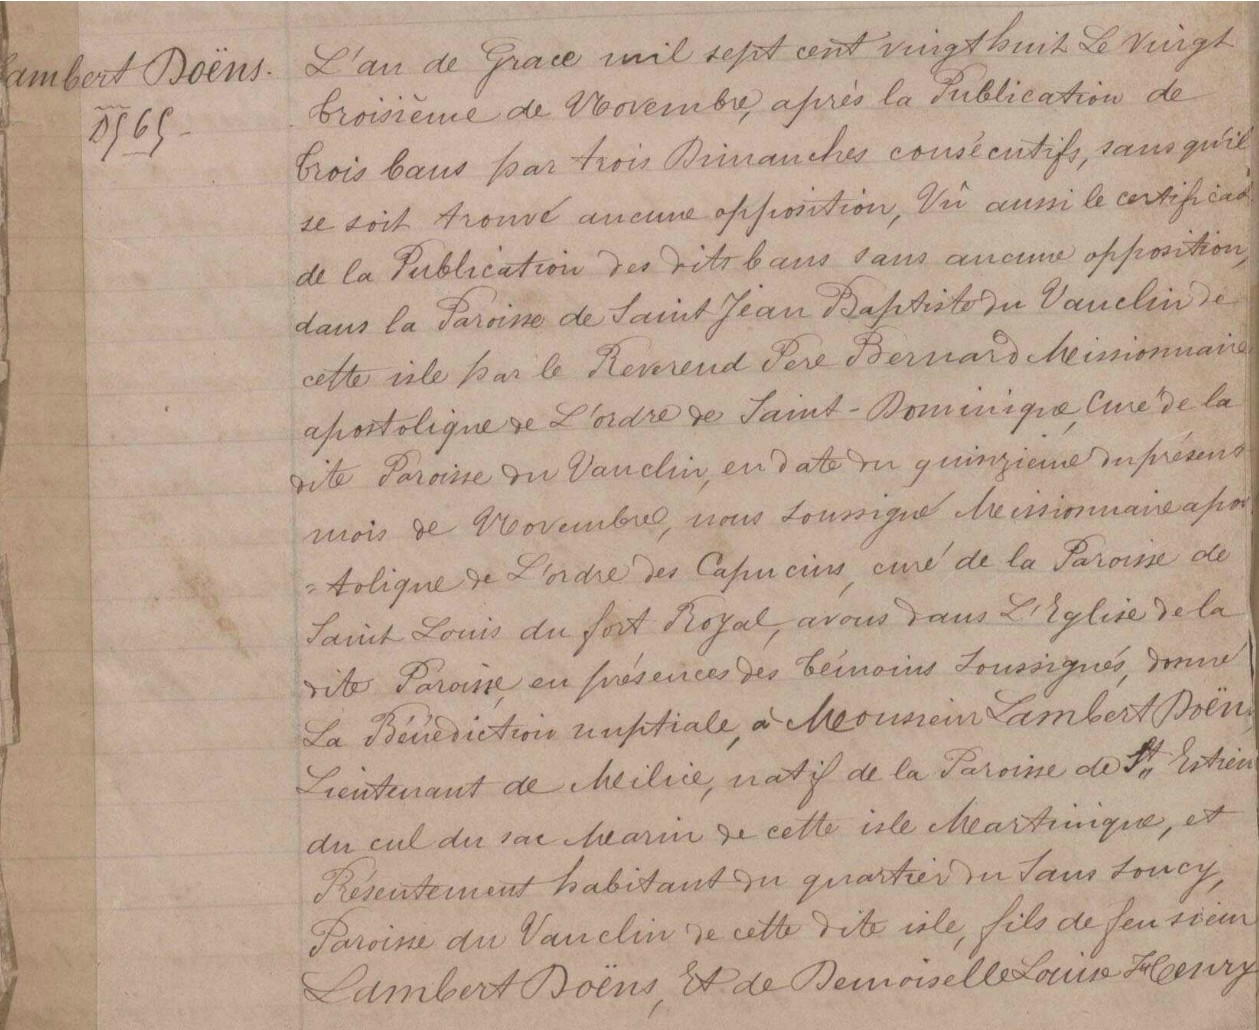 Lambert Doëns.
L'an de Grace mil sept cent vingt huit Le Vingt
troisième de Novembre, après la Publication de
trois bans par trois Dimanches consécutifs, sans qu'il
se soit trouvé aucune opposition, Vû aussi le certificat
de la Publication des dits bans sans aucune opposition,
dans la Paroisse de Saint Jean Baptiste du Vauclin de
cette isle par le Reverend Pere Bernard Missionnaire
apostolique de L'ordre de Saint-Dominique, Curé de la
dite Paroisse du Vauclin, en date du quinzième du présent
mois de Novembre, nous soussigné Missionnaire apos
=tolique de L'ordre des Capucins, curé de la Paroisse de
Saint Louis du fort Royal, avons dans L'Eglise de la
dite Paroisse, en présences des témoins soussignés, donné
La Bénédiction nuptiale, à Monsieur Lambert Doëns,
Lieutenant de Milice, natif de la Paroisse de St,, Estien
du cul du sac Marin de cette isle Martinique, et
Présentement habitant du quartier du Sans Soucy,
Paroisse du Vauclin de cette dite isle, fils de feu sieur
Lambert Doëns, Et de Demoiselle Louise Henry